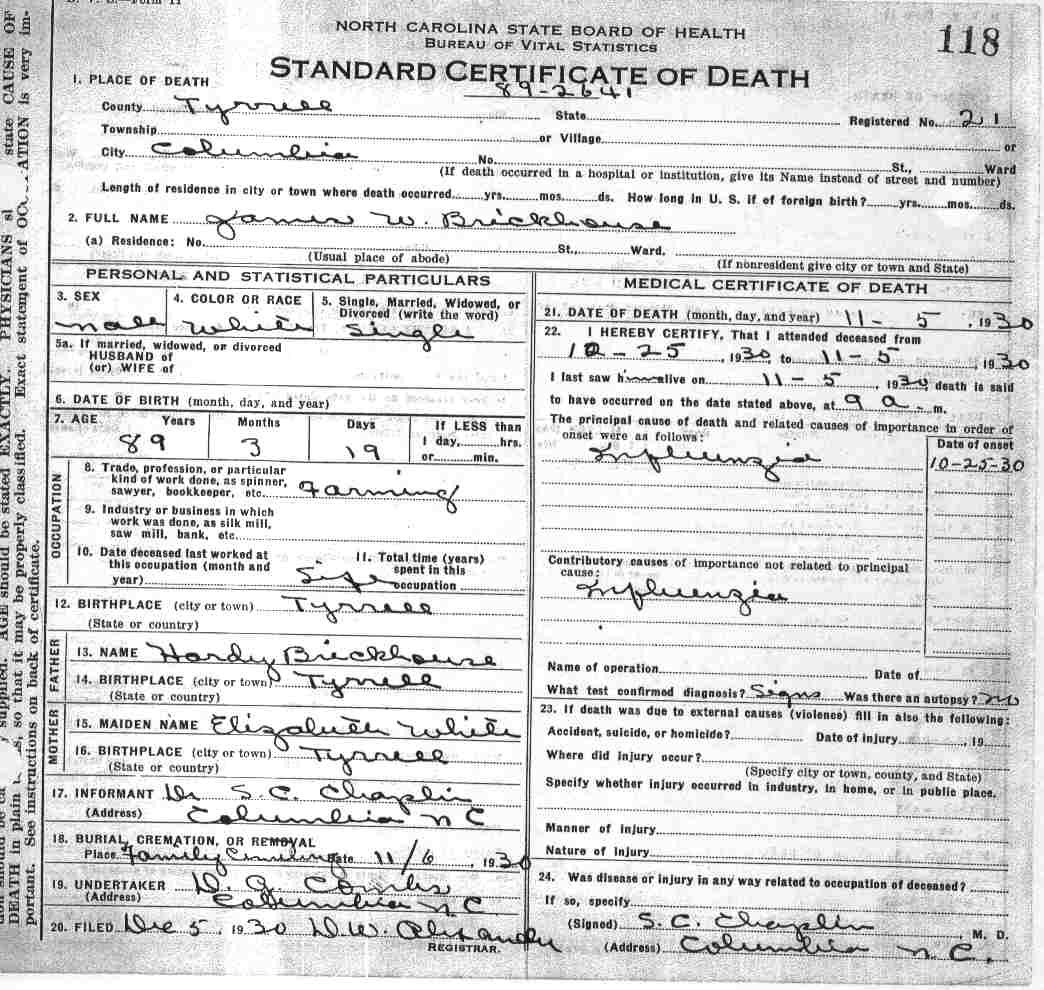 NORTH CAROLINA STATE BOARD OF HEALTH
BUREAU OF VITAL STATISTICS
118
STANDARD CERTIFICATE OF DEATH
89-2641
1. PLACE OF DEATH
County Tyrrell State Registered No. 21
Township or Village or
City Columbia No. St., Ward
(If death occurred in a hospital or institution, give its Name instead of street and number)
Length of residence in city or town where death occurred yrs. mos. ds. How long in U. S. if of foreign birth? yrs. mos. ds.
2. FULL NAME James W. Brickhouse
(a) Residence: No. St., Ward.
(Usual place of abode) (If nonresident give city or town and State)
PERSONAL AND STATISTICAL PARTICULARS
3. SEX 4. COLOR OR RACE 5. Single, Married, Widowed, or
Divorced (write the word)
Male White Single
5a. If married, widowed, or divorced
HUSBAND of
(or) WIFE of
6. DATE OF BIRTH (month, day, and year)
7. AGE Years Months Days If LESS than
89 3 19 1 day, hrs.
or min.
OCCUPATION
8. Trade, profession, or particular
kind of work done, as spinner,
sawyer, bookkeeper, etc. Farming
9. Industry or business in which
work was done, as silk mill,
saw mill, bank, etc.
10. Date deceased last worked at
this occupation (month and
year)
11. Total time (years)
spent in this
occupation
Life
12. BIRTHPLACE (city or town) Tyrrell
(State or country)
FATHER
13. NAME Hardy Brickhouse
14. BIRTHPLACE (city or town) Tyrrell
(State or country)
MOTHER
15. MAIDEN NAME Elizabeth White
16. BIRTHPLACE (city or town) Tyrrell
(State or country)
17. INFORMANT Dr S. C. Chaplin
(Address) Columbia N C
18. BURIAL, CREMATION, OR REMOVAL
Place Family Date 11/6, 1930
19. UNDERTAKER D. G. Combs
(Address) Columbia N C
20. FILED Dec 5, 1930 D. W. Alexander
REGISTRAR.
MEDICAL CERTIFICATE OF DEATH
21. DATE OF DEATH (month, day, and year) 11-5, 1930
22. I HEREBY CERTIFY, That I attended deceased from
10-25, 1930, to 11-5, 1930
I last saw him alive on 11-5, 1930, death is said
to have occurred on the date stated above, at 9 a. m.
The principal cause of death and related causes of importance in order of
onset were as follows: Date of onset
Influenzia 10-25-30
Contributory causes of importance not related to principal
cause:
Influenzia
Name of operation Date of
What test confirmed diagnosis? Signs Was there an autopsy? no
23. If death was due to external causes (violence) fill in also the following:
Accident, suicide, or homicide? Date of injury, 19
Where did injury occur?
(Specify city or town, county, and State)
Specify whether injury occurred in industry, in home, or in public place.
Manner of injury
Nature of injury
24. Was disease or injury in any way related to occupation of deceased?
If so, specify
(Signed) S. C. Chaplin, M. D.
(Address) Columbia N C.
state CAUSE OF
ATION is very im-
PHYSICIANS
Exact statement of
AGE should be stated EXACTLY.
so that it may be properly classified.
supplied.
DEATH in plain
portant. See instructions on back of certificate.